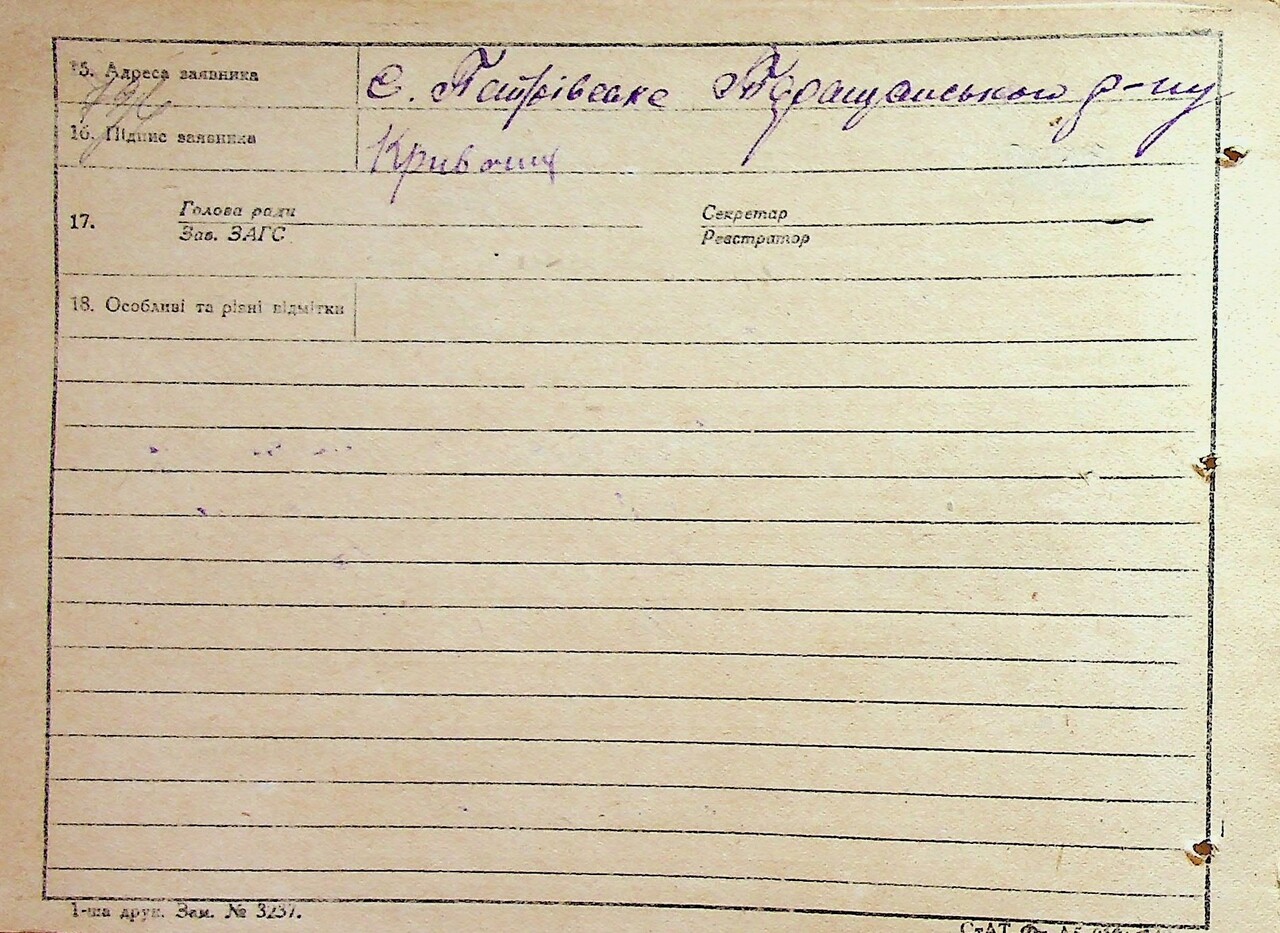 15. Адреса заявника с. Петрівське Таращанського р-ну
16. Підпис заявника
17. Голова ради Секретар
Зав. ЗАГС Реєстратор
18. Особливі та різні відмітки
1-ша друк. Зам. № 3237.